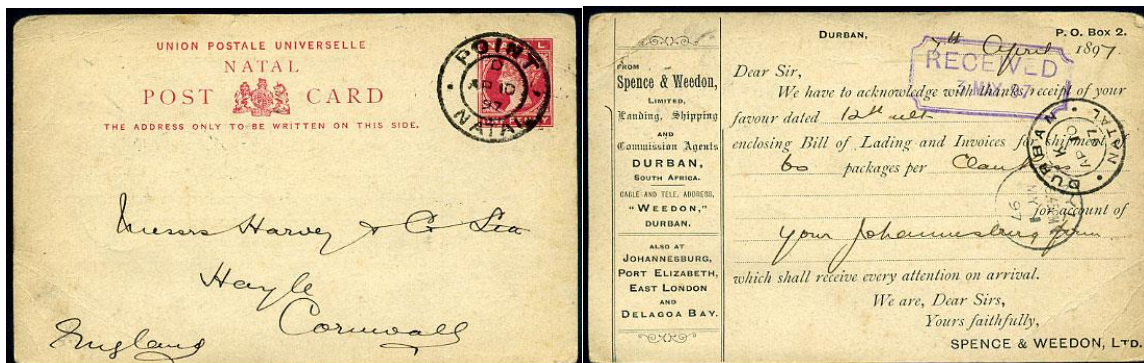 UNION POSTALE UNIVERSELLE
NATAL
POST CARD
THE ADDRESS ONLY TO BE WRITTEN ON THIS SIDE.
POINT
D
AP 10
97
NATAL
Messrs Harvey & Co Ltd
Hayle
Cornwall
England
FROM
Spence & Weedon,
LIMITED,
Landing, Shipping
AND
Commission Agents
DURBAN,
SOUTH AFRICA.
CABLE AND TELE. ADDRESS,
"WEEDON,"
DURBAN.
ALSO AT
JOHANNESBURG,
PORT ELIZABETH,
EAST LONDON
AND
DELAGOA BAY.
P. O. Box 2.
DURBAN, April 1897
RECEIVED
Dear Sir,
We have to acknowledge with thanks, receipt of your
favour dated 12th ult
enclosing Bill of Lading and Invoices for shipment
60 packages per
DURBAN
K
AP 10
97
NATAL
for account of
your Johannesburg firm
which shall receive every attention on arrival.
We are, Dear Sirs,
Yours faithfully,
SPENCE & WEEDON, LTD.